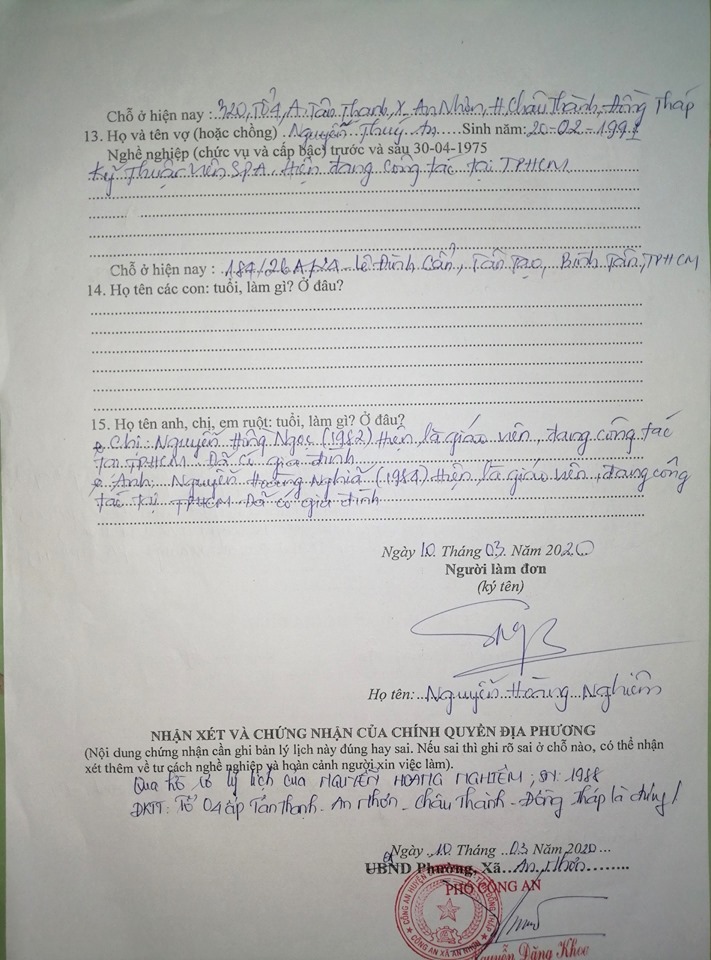 Chỗ ở hiện nay : 320, Tổ 4, A. Tân Thanh, X. An Nhơn, H. Châu Thành, Đồng Tháp
13. Họ và tên vợ (hoặc chồng) Nguyễn Thuý An Sinh năm: 20-02-1991
Nghề nghiệp (chức vụ và cấp bậc) trước và sau 30-04-1975
Kỹ Thuật Viên SPA. Hiện đang công tác tại TPHCM
Chỗ ở hiện nay : 184/26A Lê Đình Cẩn, Tân Tạo, Bình Tân, TPHCM
14. Họ tên các con: tuổi, làm gì? Ở đâu?
15. Họ tên anh, chị, em ruột: tuổi, làm gì? Ở đâu?
Chị: Nguyễn Hồng Ngọc (1982) Hiện là giáo viên, đang công tác
tại TPHCM Đã có gia đình
Anh: Nguyễn Hoàng Nghiã (1984) Hiện là giáo viên, đang công
tác tại TPHCM Đã có gia đình
Ngày 10 Tháng 03 Năm 2020
Người làm đơn
(ký tên)
Họ tên: Nguyễn Hoàng Nghiêm
NHẬN XÉT VÀ CHỨNG NHẬN CỦA CHÍNH QUYỀN ĐỊA PHƯƠNG
(Nội dung chứng nhận cần ghi bản lý lịch này đúng hay sai. Nếu sai thì ghi rõ sai ở chỗ nào, có thể nhận
xét thêm về tư cách nghề nghiệp và hoàn cảnh người xin việc làm).
Qua hồ sơ lý lịch của NGUYỄN HOÀNG NGHIÊM; SN: 1988
ĐKTT: Tổ 04 ấp Tân Thạnh - An Nhơn - Châu Thành - Đồng Tháp là đúng!
Ngày 10 Tháng 03 Năm 2020
UBND Phường, Xã An Nhơn
PHÓ CÔNG AN
CÔNG AN XÃ AN NHƠN
Nguyễn Đăng Khoa